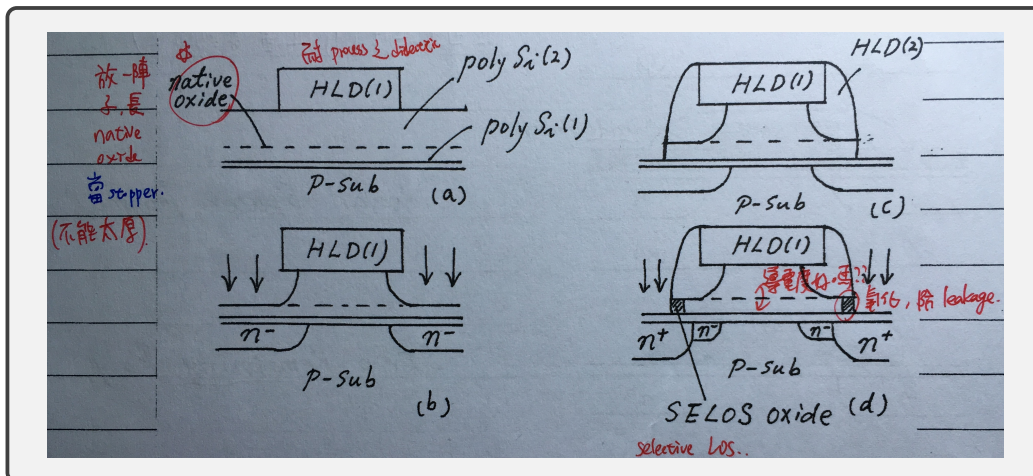 放一陣
子,長
native
oxide
當stopper.
(不能太厚).
native
oxide
耐 process 之 dielectric
HLD(1)
poly Si(2)
poly Si(1)
P-sub
(a)
HLD(1)
n⁻
n⁻
P-sub
(b)
HLD(2)
HLD(1)
P-sub
(c)
HLD(1)
導電度好嗎??
氧化,除 leakage.
n⁺
n⁻
n⁻
n⁺
P-sub
SELOS oxide
(d)
selective LOS..